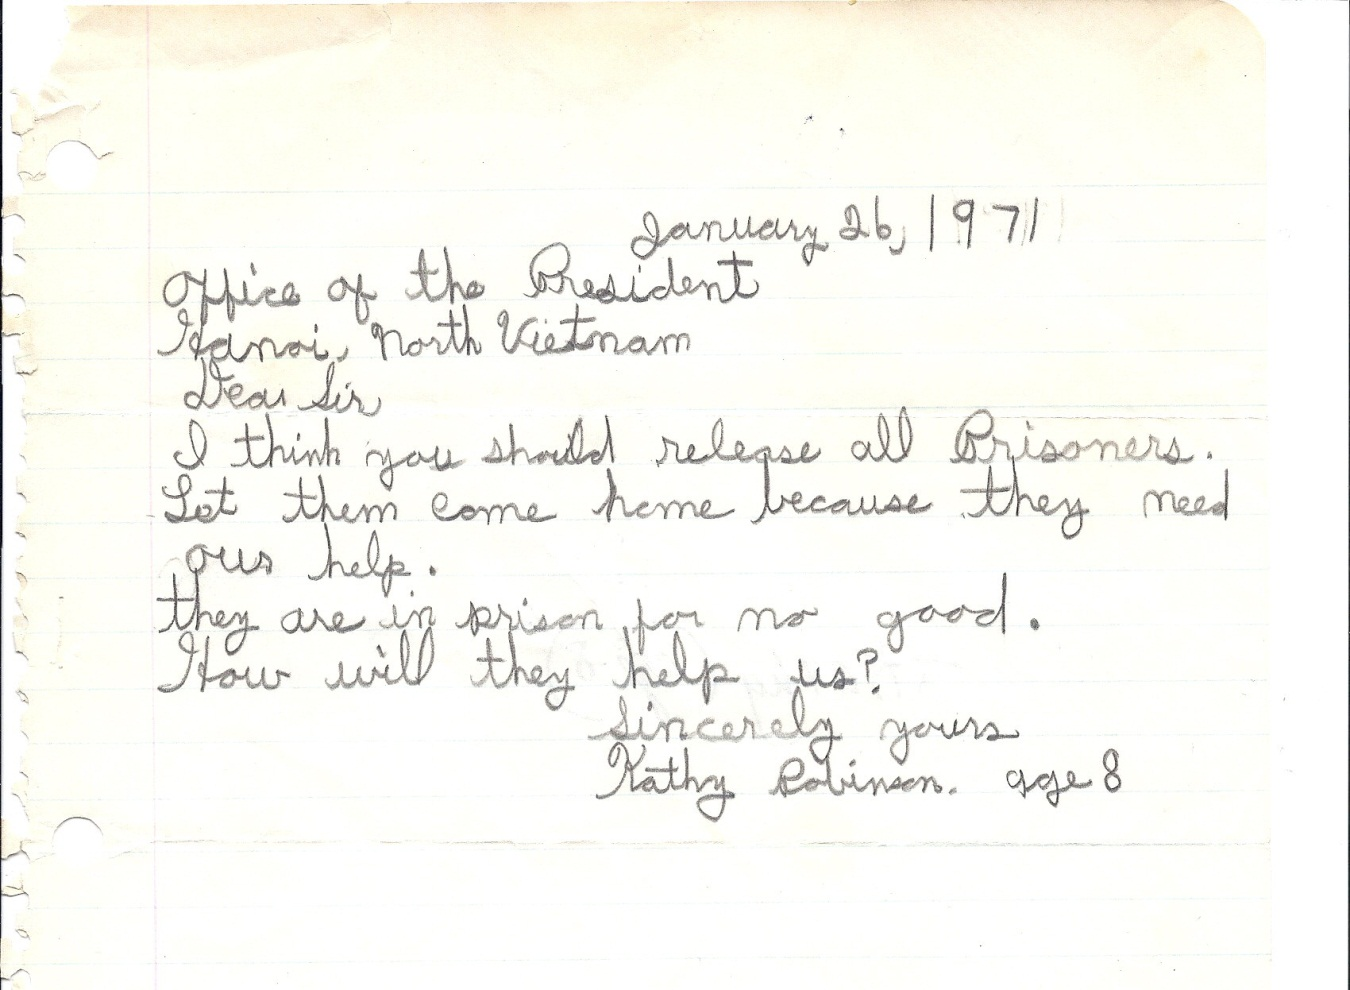 January 26, 1971
Office of the President
Hanoi, North Vietnam
Dear Sir
I think you should release all Prisoners.
Let them come home because they need
our help.
they are in prison for no good.
How will they help us?
Sincerely yours
Kathy Robinson. age 8